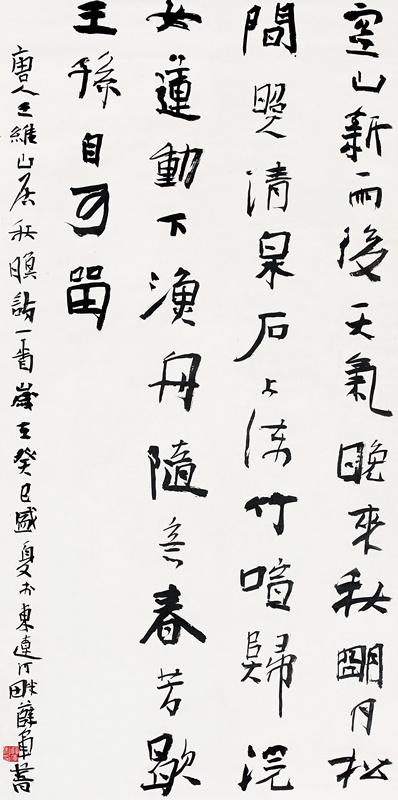 空山新雨後天氣晚來秋明月松
間照清泉石上流竹喧歸浣
女蓮動下漁舟隨意春芳歇
王孫自可留
唐人王維山居秋暝詩一首歲在癸巳盛夏於東運河畔薛軍書